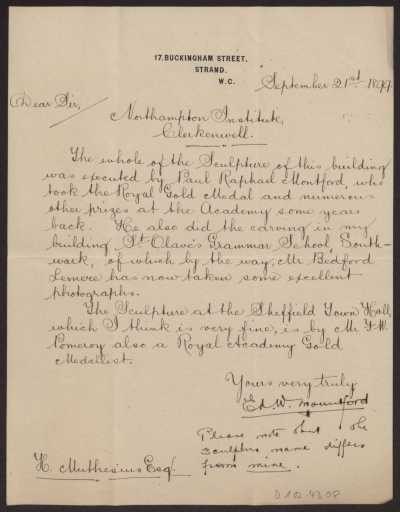 17, BUCKINGHAM STREET,
STRAND.
W.C.
September 21st 1899.
Dear Sir,
Northampton Institute,
Clerkenwell.
The whole of the Sculpture of this building
was executed by Paul Raphael Montford, who
took the Royal Gold Medal and numerous
other prizes at the Academy some years
back. He also did the carving in my
building, St Olave's Grammar School, South-
wark, of which by the way, Mr Bedford
Lemere has now taken some excellent
photographs.
The Sculpture at the Sheffield Town Hall,
which I think is very fine, is by Mr F. W.
Pomeroy also a Royal Academy Gold
Medallist.
Yours very truly
Ed. W. Mountford
Please note that the
sculptors name differs
from mine.
H. Muthesius Esqr.
D 102-4308